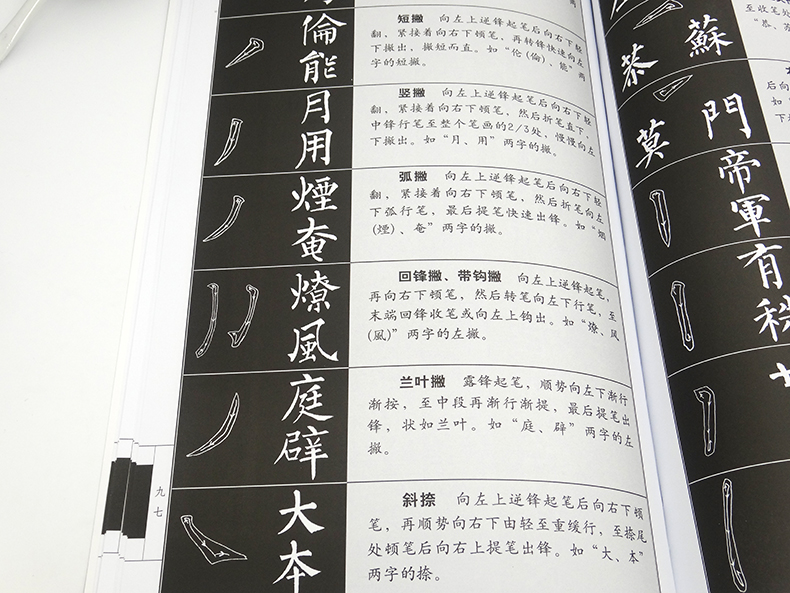 倫
能
短撇 向左上逆锋起笔后向右下轻
翻，紧接着向右下顿笔，再转锋快速向左
下撇出，撇短而直。如“伦(倫)、能”两
字的短撇。
月
用
竖撇 向左上逆锋起笔后向右下轻
翻，紧接着向右下顿笔，然后折笔直下，
中锋行笔至整个笔画的2/3处，慢慢向左
下撇出。如“月、用”两字的撇。
煙
奄
弧撇 向左上逆锋起笔后向右下轻
翻，紧接着向右下顿笔，然后折笔向左
下弧行笔，最后提笔快速出锋。如“烟
(煙)、奄”两字的撇。
燎
風
回锋撇、带钩撇 向左上逆锋起笔，
再向右下顿笔，然后转笔向左下行笔，至
末端回锋收笔或向左上钩出。如“燎、风
(風)”两字的左撇。
庭
辟
兰叶撇 露锋起笔，顺势向左下渐行
渐按，至中段再渐行渐提，最后提笔出
锋，状如兰叶。如“庭、辟”两字的左
撇。
大
本
斜捺 向左上逆锋起笔后向右下顿
笔，再顺势向右下由轻至重缓行，至捺尾
处顿笔后向右上提笔出锋。如“大、本”
两字的捺。
九七
蘇
恭
門
莫
帝
軍
有
秩
至收笔处
“恭、苏